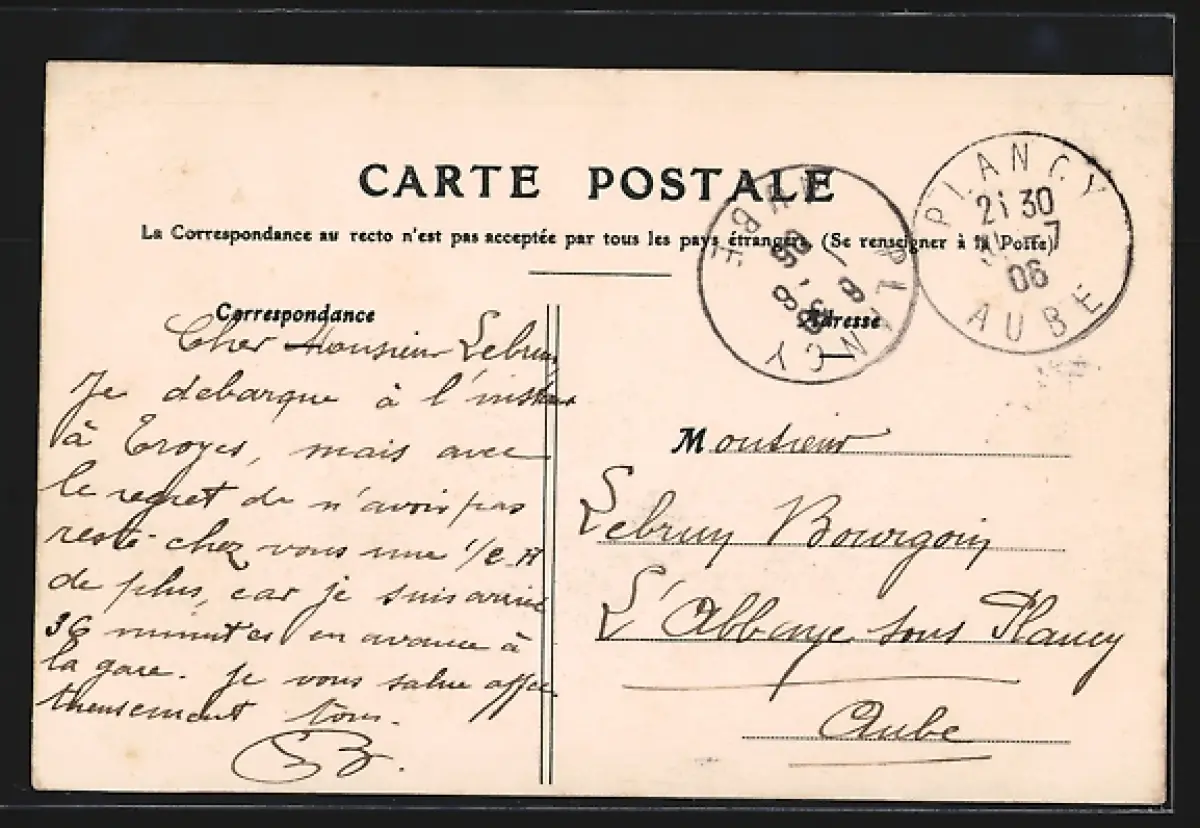 CARTE POSTALE
La Correspondance au recto n'est pas acceptée par tous les pays étrangers. (Se renseigner à la Poste)
Correspondance
Adresse
PLANCY
21 30
-7
06
AUBE
PLANCY
AUBE
Cher Monsieur
Je debarque à l'instant
à Troyes, mais avec
le regret de n'avoir pas
resté chez vous une 1/2 H
de plus, car je suis arrivé
36 minutes en avance à
la gare. Je vous salue affec
tueusement tous.
Monsieur
Bourgoin
L'Abbaye sous Plancy
Aube